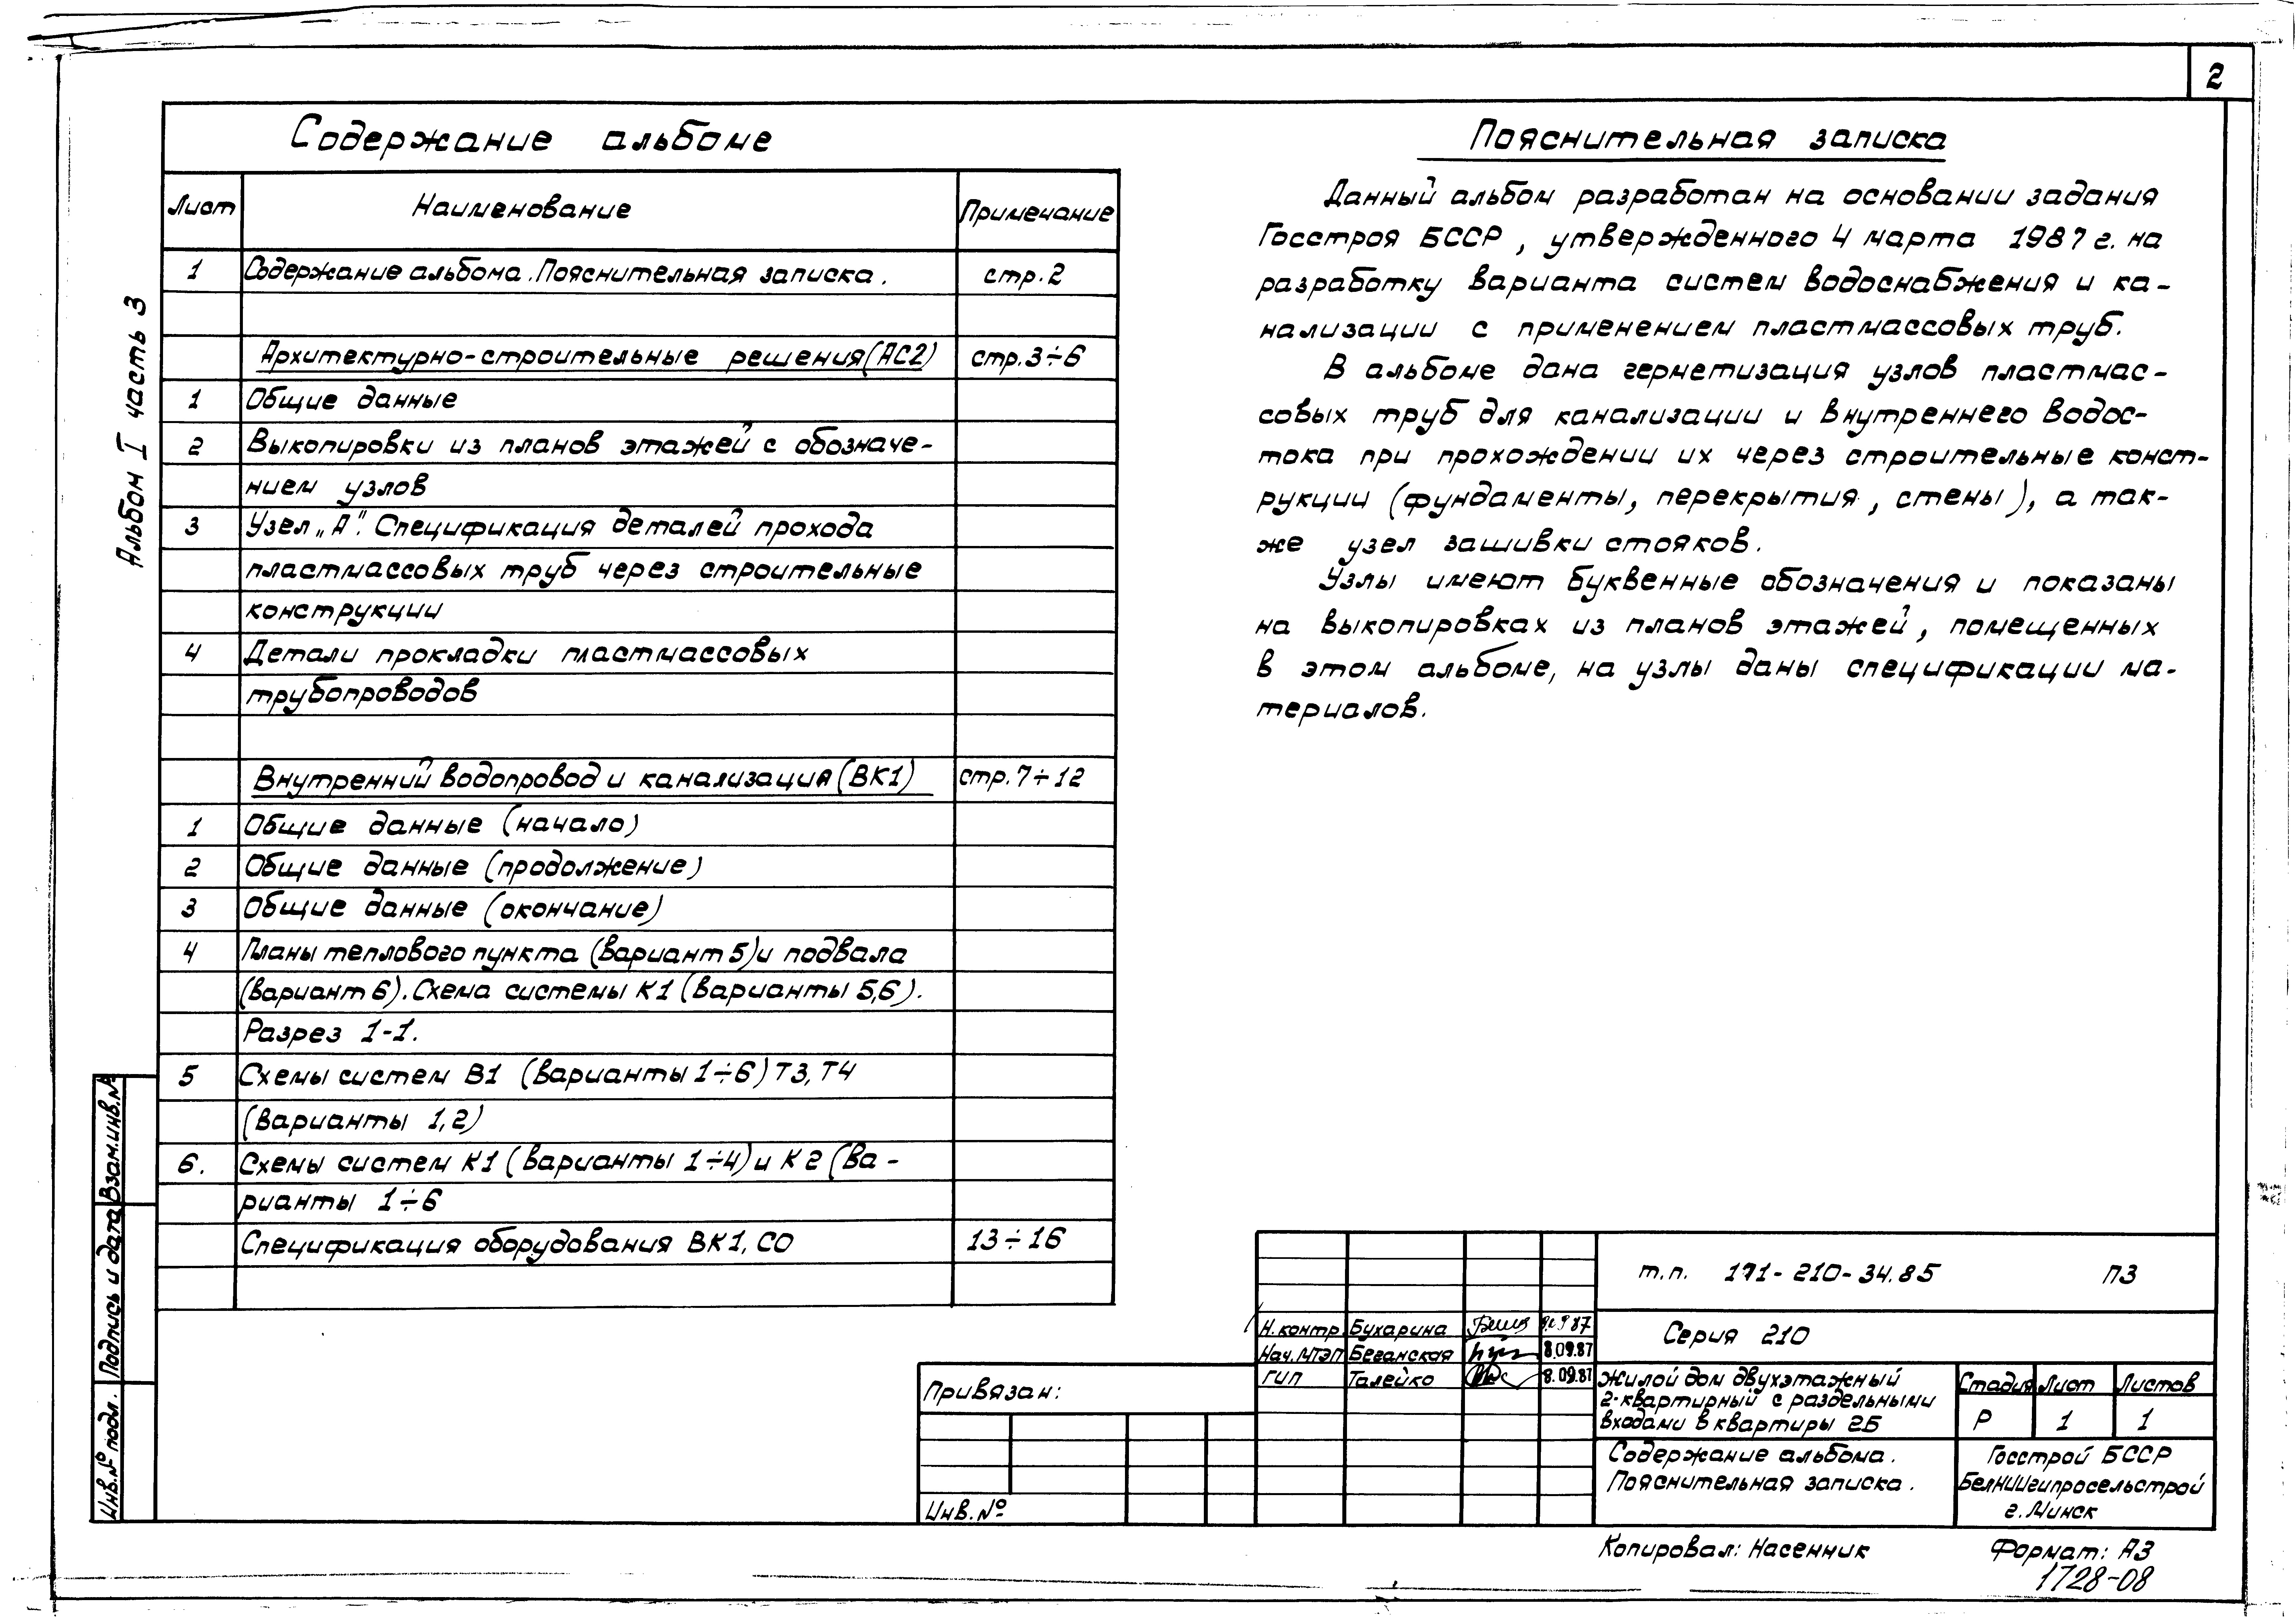 2
Альбом I часть 3
Содержание альбоме
Лист Наименование Примечание
1 Содержание альбома. Пояснительная записка. стр. 2
Архитектурно-строительные решения (АС2) стр. 3÷6
1 Общие данные
2 Выкопировки из планов этажей с обозначе-
нием узлов
3 Узел „А". Спецификация деталей прохода
пластмассовых труб через строительные
конструкции
4 Детали прокладки пластмассовых
трубопроводов
Внутренний водопровод и канализация (ВК1) стр. 7÷12
1 Общие данные (начало)
2 Общие данные (продолжение)
3 Общие данные (окончание)
4 Планы теплового пункта (вариант 5) и подвала
(вариант 6). Схема системы К1 (варианты 5,6).
Разрез 1-1.
5 Схемы систем В1 (варианты 1÷6) Т3, Т4
(варианты 1,2)
6. Схемы систем К1 (варианты 1÷4) и К2 (ва-
рианты 1÷6
Спецификация оборудования ВК1, СО 13÷16
Пояснительная записка
Данный альбом разработан на основании задания
Госстроя БССР, утвержденного 4 марта 1987 г. на
разработку варианта систем водоснабжения и ка-
нализации с применением пластмассовых труб.
В альбоме дана герметизация узлов пластмас-
совых труб для канализации и внутреннего водос-
тока при прохождении их через строительные конст-
рукции (фундаменты, перекрытия, стены), а так-
же узел зашивки стояков.
Узлы имеют буквенные обозначения и показаны
на выкопировках из планов этажей, помещенных
в этом альбоме, на узлы даны спецификации ма-
териалов.
Взам.инв.№
Подпись и дата
Инв.№ подл.
Привязан:
Инв.№
Н.контр. Бухарина
Нач.МТЭП Беганская 8.09.87
ГИП Талейко 8.09.87
т.п. 171-210-34.85 ПЗ
Серия 210
Жилой дом двухэтажный
2-квартирный с раздельными
входами в квартиры 2Б
Стадия Лист Листов
Р 1 1
Содержание альбома.
Пояснительная записка.
Госстрой БССР
БелНИИгипросельстрой
г. Минск
Копировал: Насенник
Формат: А3
1728-08